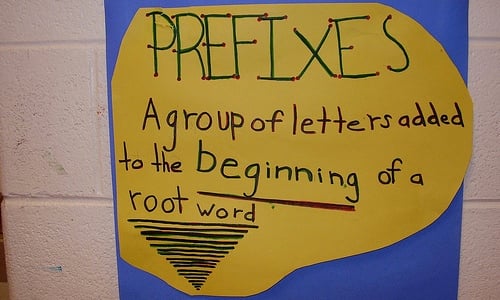 PREFIXES
A group of letters added
to the beginning of a
root word